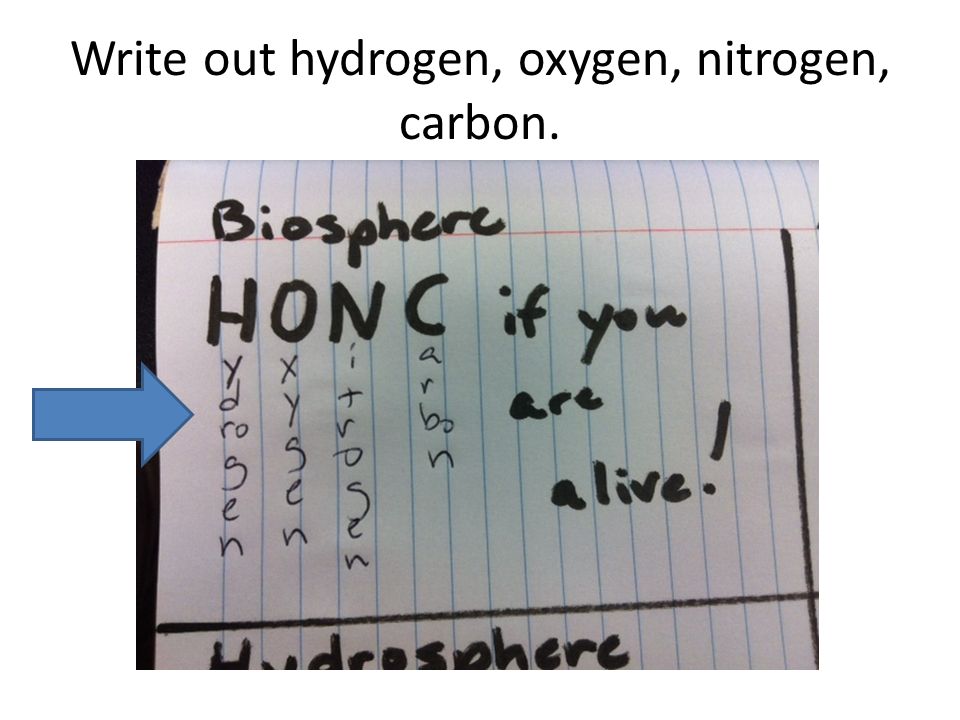 Write out hydrogen, oxygen, nitrogen,
carbon.
Biosphere
HONC if you
are
alive!
ydrogen
xygen
itrogen
arbon
Hydrosphere